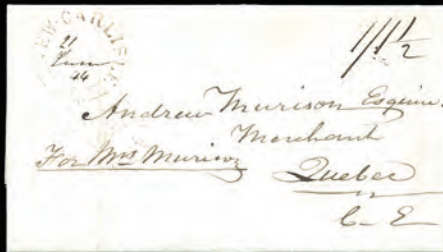 NEW CARLISLE
21
June
44
1/1 1/2
Andrew Murison Esquire
Merchant
For Mrs Murison
Quebec
C- E